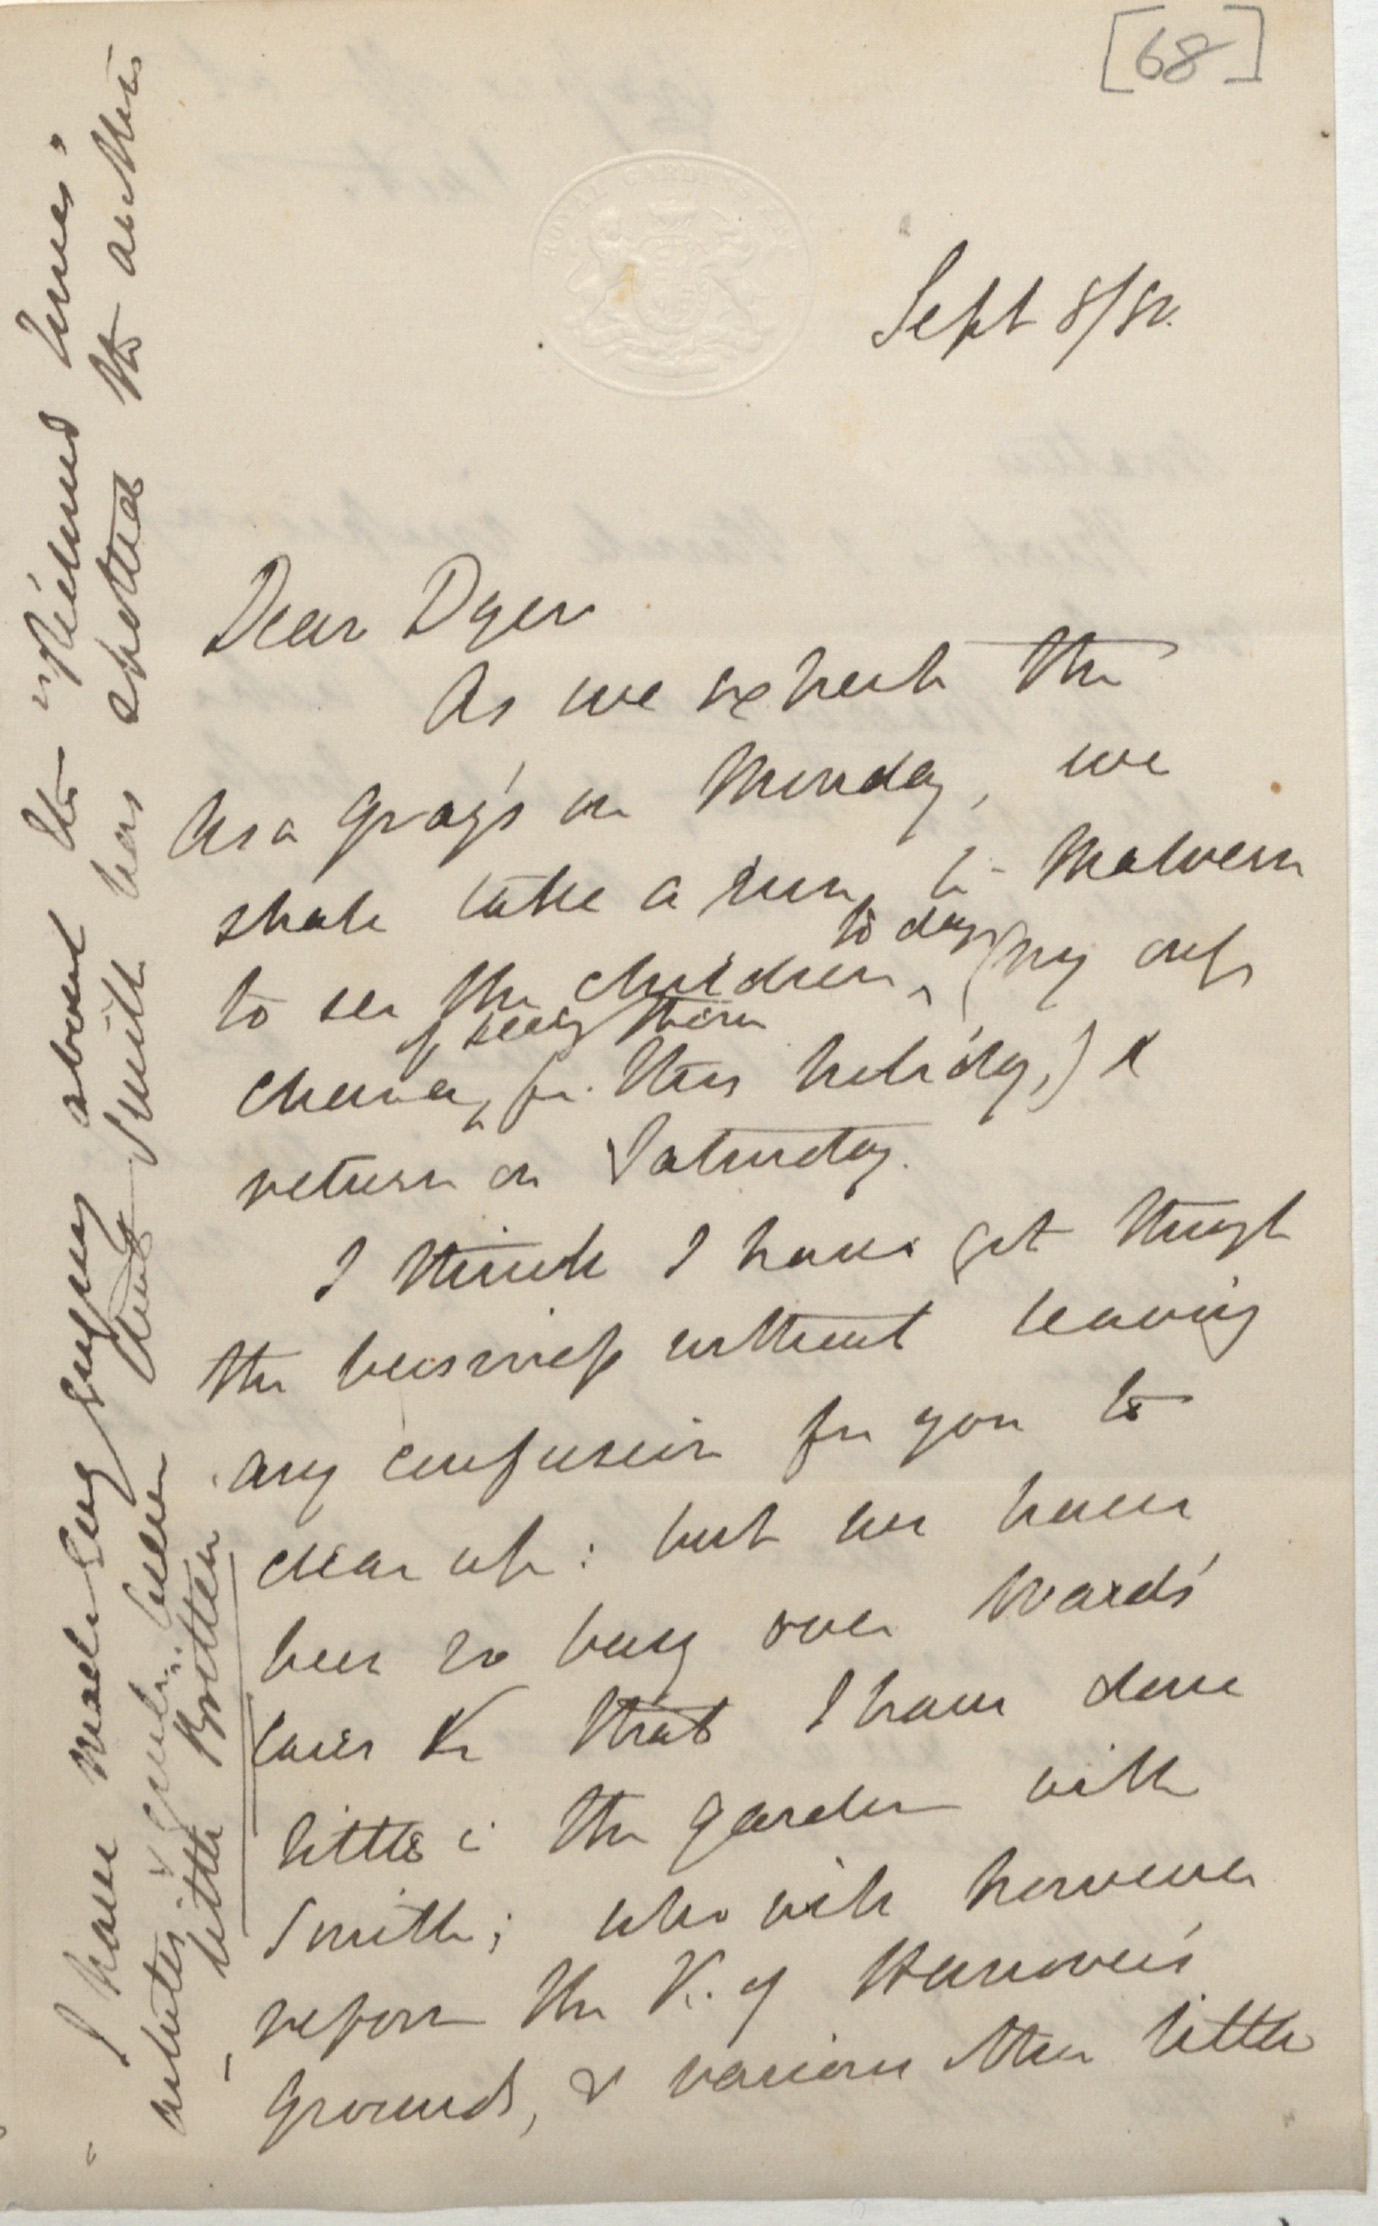 [68]
ROYAL GARDENS KEW
Sept 8/80.
Dear Dyer
As we expect the
Asa Gray's on Monday, we
shall take a run to Malvern
to day
to see the children, (my only
of seeing them
chance, for this holiday,) &
return on Saturday.
I think I have got through
the business without leaving
any confusion for you to
clear up: but we have
been so busy over Wards'
cases &c that I have done
little in the garden with
Smith; who will however
reform the K. of Hanover's
grounds, & various other little
I have made Guy enquiry about the
Times,"
articles & Smith has spotted the author
little Britten